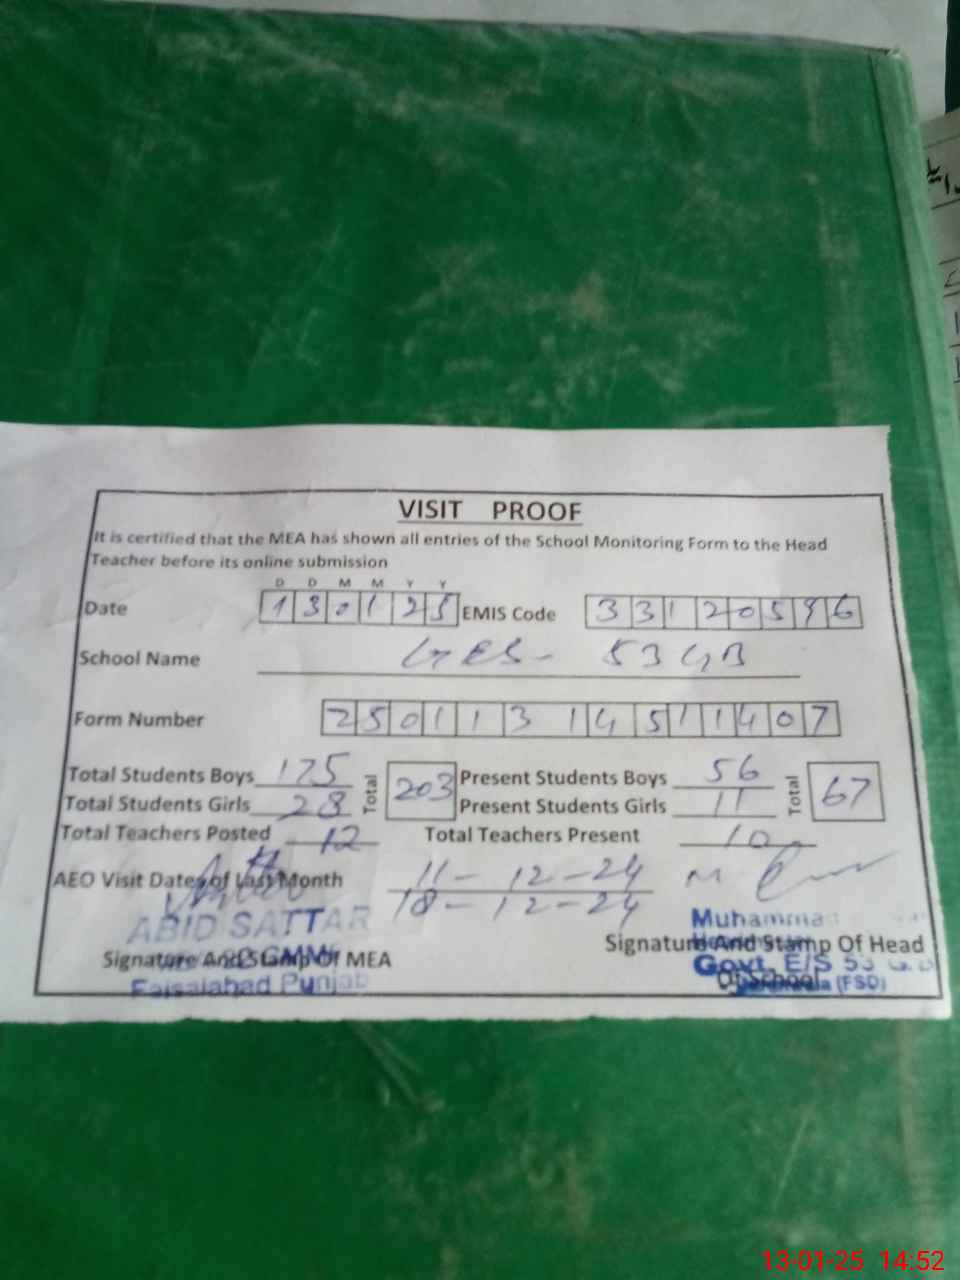 VISIT PROOF
It is certified that the MEA has shown all entries of the School Monitoring Form to the Head
Teacher before its online submission
D D M M Y Y
Date 130125 EMIS Code 33120596
School Name GES- 53 GB
Form Number 25011314511407
Total Students Boys 175 Total 203 Present Students Boys 56 Total 67
Total Students Girls 28 Present Students Girls 11
Total Teachers Posted 12 Total Teachers Present 10
AEO Visit Dates of Last Month 11-12-24
18-12-24
ABID SATTAR
Muhammad
Signature And Stamp Of MEA
Signature And Stamp Of Head
Of School
Faisalabad Punjab
Govt. E/S 53 G.B
(FSD)
13-01-25 14:52